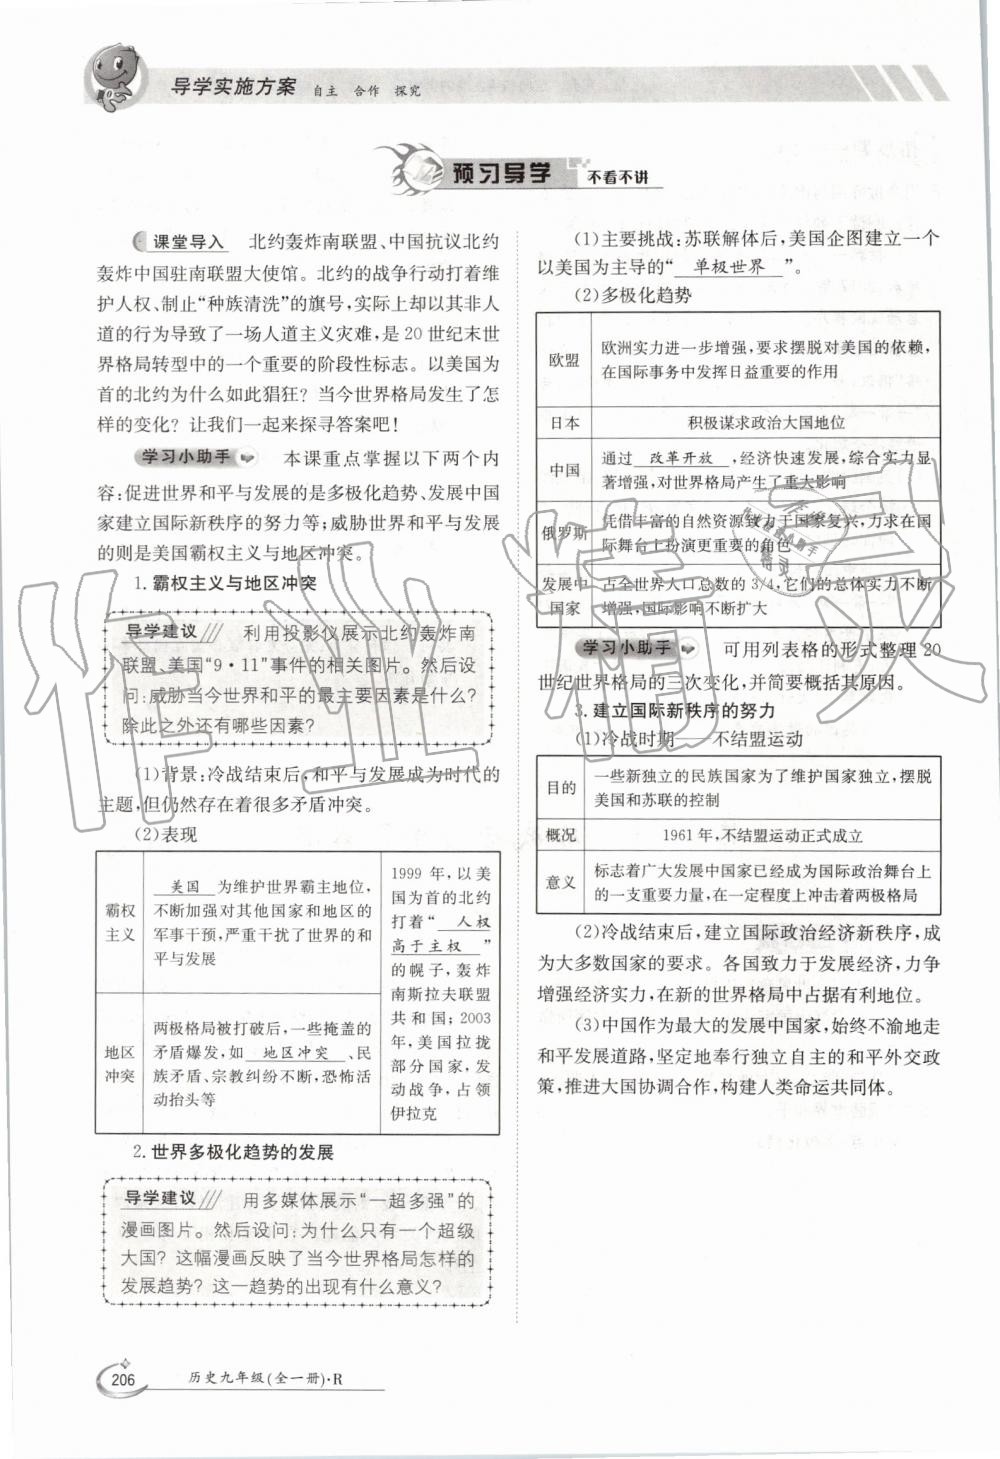 导学实施方案 自主 合作 探究
预习导学 不看不讲
课堂导入 北约轰炸南联盟、中国抗议北约
轰炸中国驻南联盟大使馆。北约的战争行动打着维
护人权、制止“种族清洗”的旗号,实际上却以其非人
道的行为导致了一场人道主义灾难,是 20 世纪末世
界格局转型中的一个重要的阶段性标志。以美国为
首的北约为什么如此猖狂？当今世界格局发生了怎
样的变化？让我们一起来探寻答案吧！
学习小助手 本课重点掌握以下两个内
容:促进世界和平与发展的是多极化趋势、发展中国
家建立国际新秩序的努力等;威胁世界和平与发展
的则是美国霸权主义与地区冲突。
1. 霸权主义与地区冲突
导学建议 利用投影仪展示北约轰炸南
联盟、美国“9·11”事件的相关图片。然后设
问:威胁当今世界和平的最主要因素是什么？
除此之外还有哪些因素？
(1)背景:冷战结束后,和平与发展成为时代的
主题,但仍然存在着很多矛盾冲突。
(2)表现
霸权
主义
美国 为维护世界霸主地位,
不断加强对其他国家和地区的
军事干预,严重干扰了世界的和
平与发展
地区
冲突
两极格局被打破后,一些掩盖的
矛盾爆发,如 地区冲突 、民
族矛盾、宗教纠纷不断,恐怖活
动抬头等
1999 年,以美
国为首的北约
打着“ 人权
高于主权 ”
的幌子,轰炸
南斯拉夫联盟
共和国;2003
年,美国拉拢
部分国家,发
动战争,占领
伊拉克
2. 世界多极化趋势的发展
导学建议 用多媒体展示“一超多强”的
漫画图片。然后设问:为什么只有一个超级
大国？这幅漫画反映了当今世界格局怎样的
发展趋势？这一趋势的出现有什么意义？
(1)主要挑战:苏联解体后,美国企图建立一个
以美国为主导的“ 单极世界 ”。
(2)多极化趋势
欧盟
欧洲实力进一步增强,要求摆脱对美国的依赖,
在国际事务中发挥日益重要的作用
日本 积极谋求政治大国地位
中国
通过 改革开放 ,经济快速发展,综合实力显
著增强,对世界格局产生了重大影响
俄罗斯
凭借丰富的自然资源致力于国家复兴,力求在国
际舞台上扮演更重要的角色
发展中
国家
占全世界人口总数的 3/4,它们的总体实力不断
增强,国际影响不断扩大
学习小助手 可用列表格的形式整理 20
世纪世界格局的三次变化,并简要概括其原因。
3. 建立国际新秩序的努力
(1)冷战时期——不结盟运动
目的
一些新独立的民族国家为了维护国家独立,摆脱
美国和苏联的控制
概况 1961 年,不结盟运动正式成立
意义
标志着广大发展中国家已经成为国际政治舞台上
的一支重要力量,在一定程度上冲击着两极格局
(2)冷战结束后,建立国际政治经济新秩序,成
为大多数国家的要求。各国致力于发展经济,力争
增强经济实力,在新的世界格局中占据有利地位。
(3)中国作为最大的发展中国家,始终不渝地走
和平发展道路,坚定地奉行独立自主的和平外交政
策,推进大国协调合作,构建人类命运共同体。
206 历史九年级(全一册)·R
作业精灵